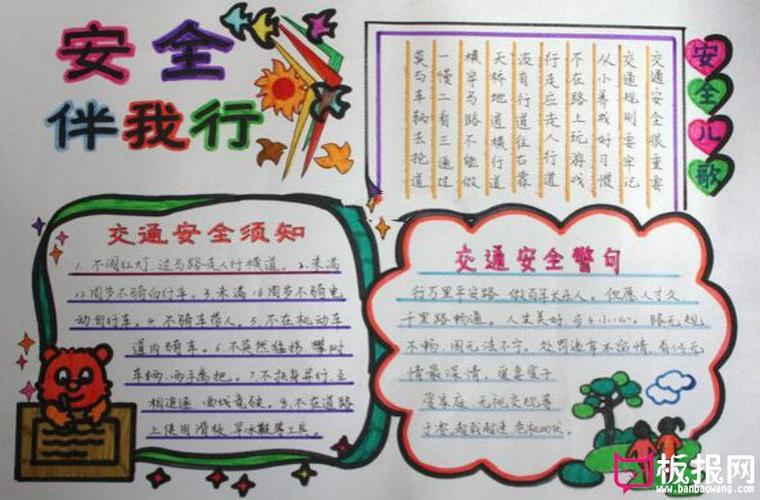 安全
伴我行
安全儿歌
交通安全很重要
交通规则要牢记
从小养成好习惯
不在路上玩游戏
行走应走人行道
没有行道往右靠
天桥地道横行道
横穿马路不能做
一慢二看三通过
莫与车辆去抢道
交通安全须知
1.不闯红灯,过马路走人行横道。2.未满
12周岁不骑自行车。3.未满16周岁不骑电
动自行车。4.不骑车带人。5.不在机动车
道内骑车。6.不突然猛拐,攀附
车辆,双手离把。7.不扶身并行,互
相追逐,曲线竞驶。8.不在道路
上使用滑板,旱冰鞋等工具。
交通安全警句
行万里平安路 做百年大乐人。但愿人长久
千里路畅通。人生美好 步步小心。路无规
不畅,国无法不宁。处罚违章不留情,看似无
情最深情。爱妻爱子
爱家庭 无视交规等
于零。超载超速 危机四伏。
板报网
www.banbaowang.com